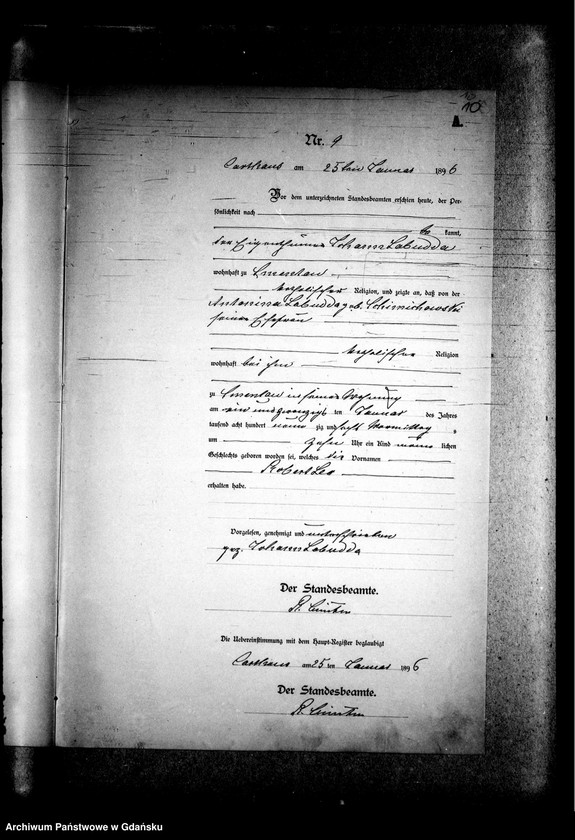 10
A.
Nr. 9
Carthaus am 25ten Januar 1896
Vor dem unterzeichneten Standesbeamten erschien heute, der Per-
sönlichkeit nach
be kannt,
der Eigenthümer Johann Labudda
wohnhaft zu Smentau
katholischer Religion, und zeigte an, daß von der
Antonina Labudda geb. Schimichowski
seiner Ehefrau
katholischer Religion
wohnhaft bei ihm
zu Smentau in seiner Wohnung
am ein und zwanzigsten ten Januar des Jahres
tausend acht hundert neun zig und sechs Vormittags
um zehn Uhr ein Kind männ lichen
Geschlechts geboren worden sei, welches die Vornamen
Robert Leo
erhalten habe.
Vorgelesen, genehmigt und unterschrieben
gez. Johann Labudda
Der Standesbeamte.
Die Uebereinstimmung mit dem Haupt-Register beglaubigt
Carthaus am 25 ten Januar 1896
Der Standesbeamte.
Archiwum Państwowe w Gdańsku